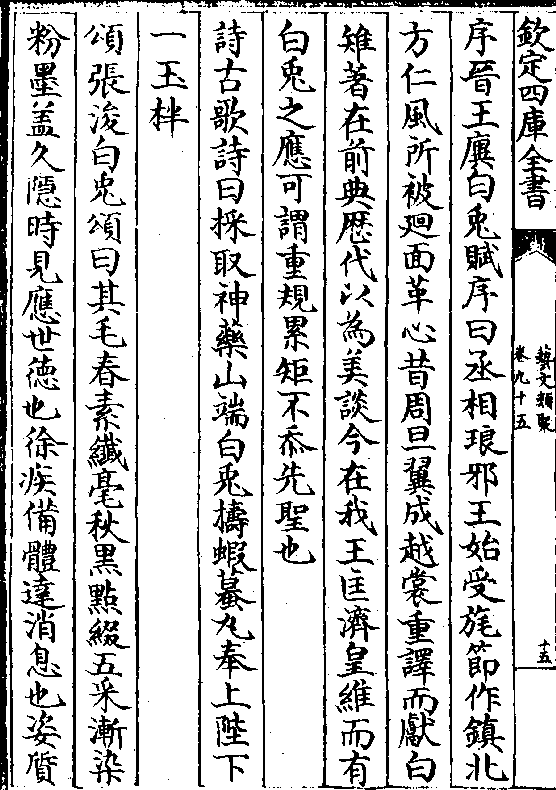 欽定四庫全書
藝文類聚
卷九十五
十五
序晉王廙白兎賦序曰丞相琅邪王始受旄節作鎮北
方仁風所被廻面革心昔周旦翼成越裳重譯而獻白
雉著在前典歴代以為美談今在我王匡濟皇維而有
白兎之應可謂重規累矩不忝先聖也
詩古歌詩曰採取神藥山端白兎擣蝦蟇丸奉上陛下
一玉柈
頌張浚白兎頌曰其毛春素纎毫秋黑點綴五采漸染
粉墨盖久隱時見應世徳也徐疾備體達消息也姿質